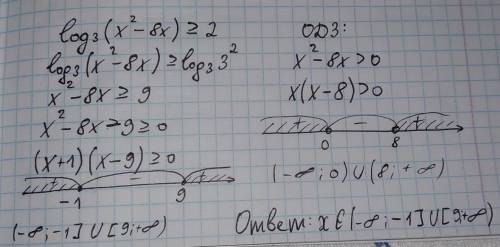 log₃(x²-8x) ≥ 2
log₃(x²-8x) ≥ log₃3²
x²-8x ≥ 9
x²-8x-9 ≥ 0
(x+1)(x-9) ≥ 0
+ - +
-1 9
(-∞;-1]∪[9;+∞)
ОДЗ:
x²-8x>0
x(x-8)>0
+ - +
0 8
(-∞;0)∪(8;+∞)
Ответ: x∈(-∞;-1]∪[9;+∞)